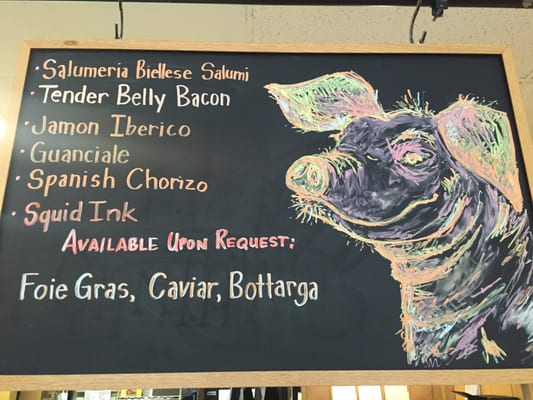 · Salumeria Biellese Salumi
· Tender Belly Bacon
· Jamon Iberico
· Guanciale
· Spanish Chorizo
· Squid Ink
Available Upon Request:
Foie Gras, Caviar, Bottarga